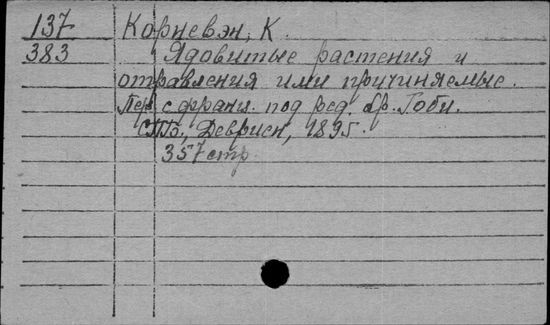 137 Корневэн, К.
383 Ядовитые растения и
отравления ими причиняемые.
Пер. с франц. под ред. др. Гоби.
СПб., Девриен, 1895.
357 стр.